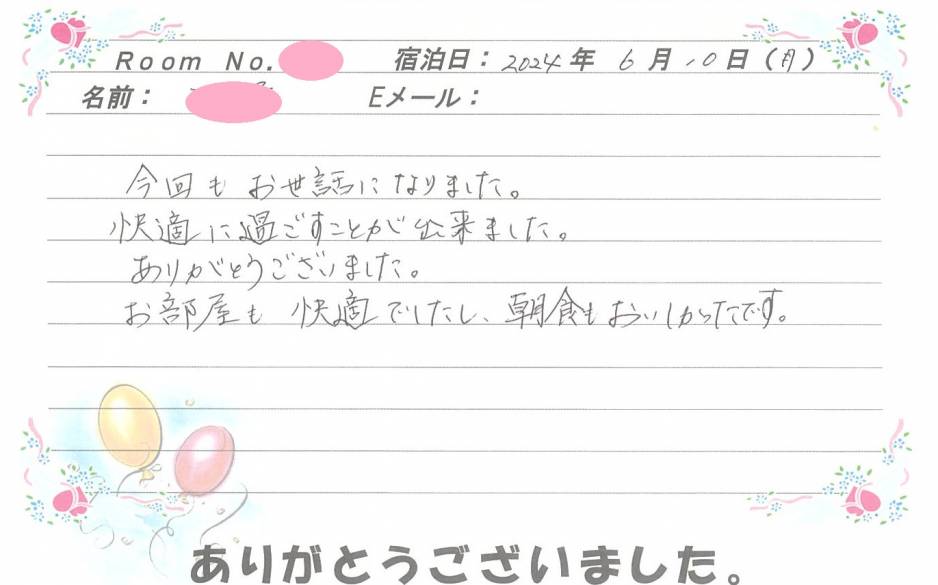 Room No. 宿泊日：2024年 6月 10日（月）
名前： Eメール：
今回も お世話になりました。
快適に過ごすことが出来ました。
ありがとうございました。
お部屋も 快適でしたし、朝食もおいしかったです。
ありがとうございました。